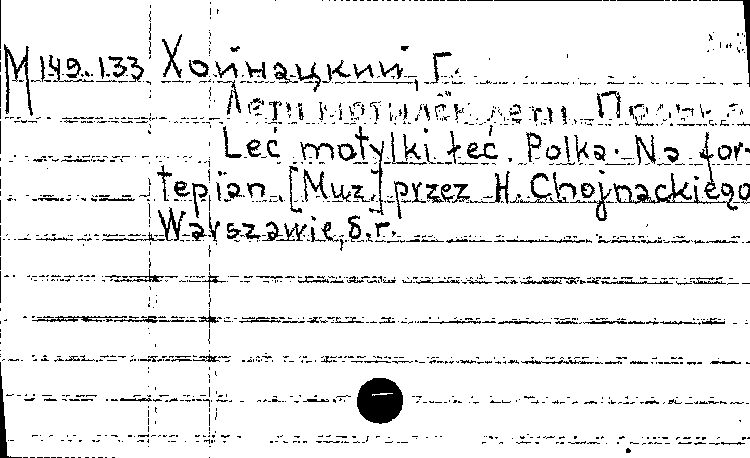 М 149.133 Хойнацкий, Г.
Лети мотилёк лети. Полька
Leć motylki łeć. Polka. Na for-
tepian. [Muz.] przez H. Chojnackiego
Warszawie, б.г.